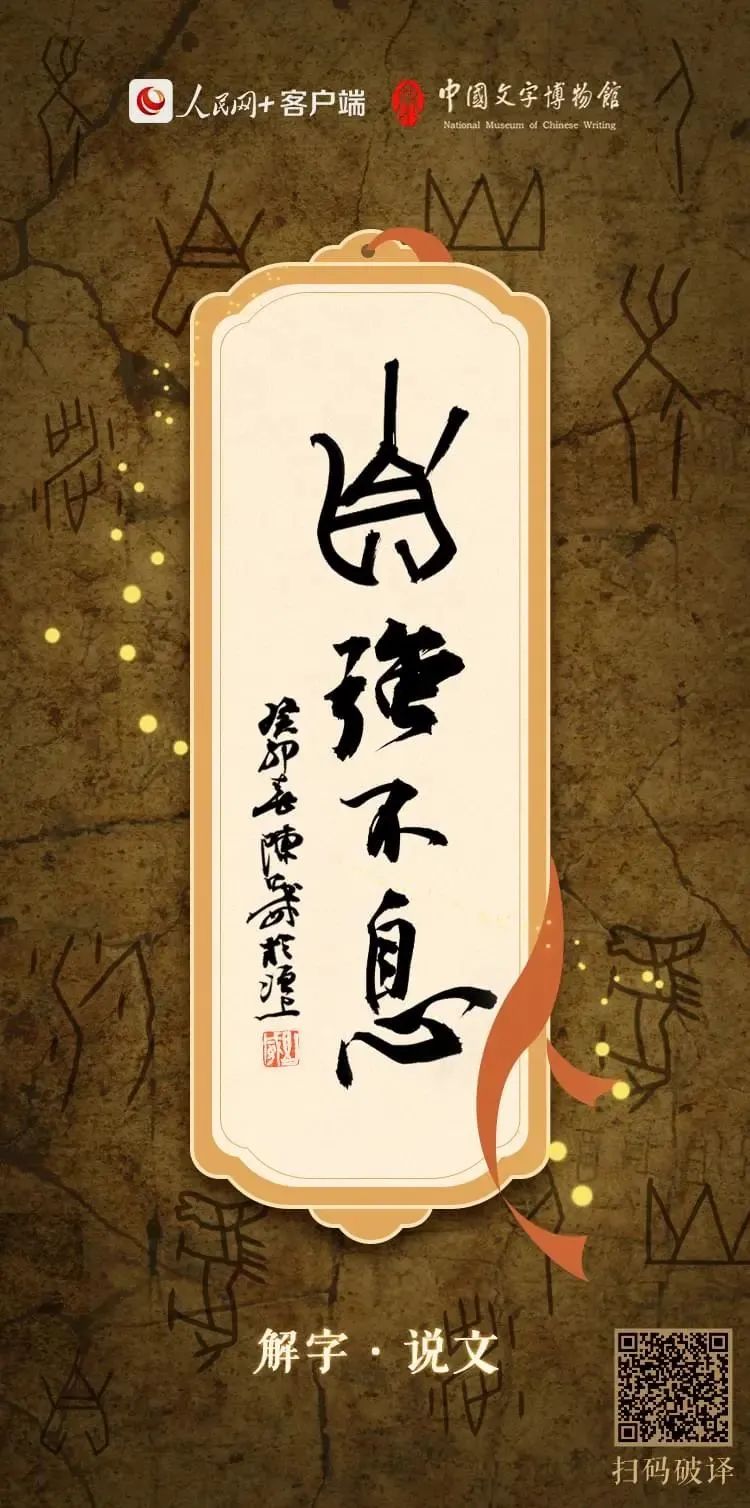 人民网+客户端
中國文字博物館
National Museum of Chinese Writing
自強不息
癸卯春陳
解字·说文
扫码破译